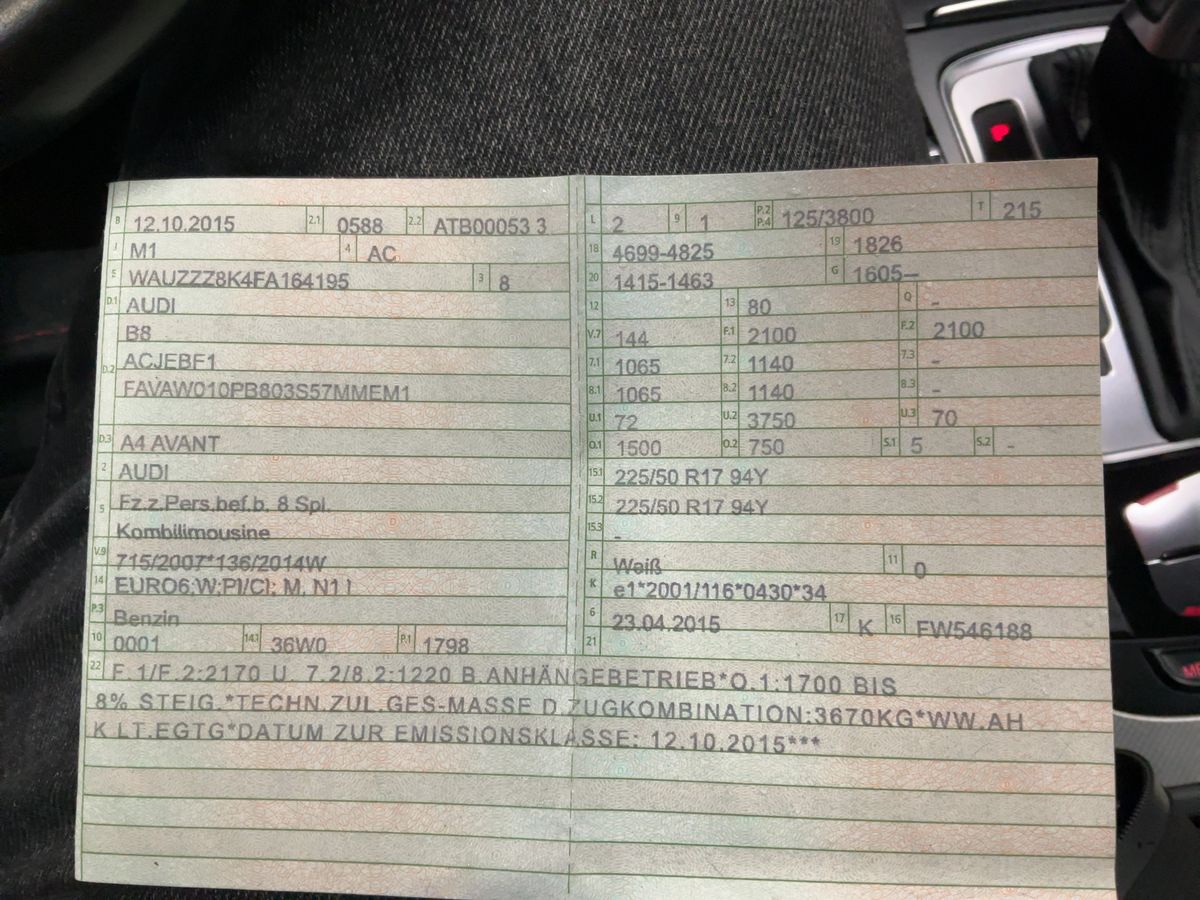 B 12.10.2015 2.1 0588 2.2 ATB00053 3
J M1 4 AC
E WAUZZZ8K4FA164195 3 8
D.1 AUDI
B8
D.2 ACJEBF1
FAVAW010PB803S57MMEM1
D.3 A4 AVANT
2 AUDI
5 Fz.z.Pers.bef.b. 8 Spl.
Kombilimousine
V.9 715/2007*136/2014W
14 EURO6;W;PI/CI; M, N1 I
P.3 Benzin
10 0001 14.1 36W0 P.1 1798
L 2 9 1 P.2 P.4 125/3800 T 215
18 4699-4825 19 1826
20 1415-1463 G 1605–
12 13 80 Q -
V.7 144 F.1 2100 F.2 2100
7.1 1065 7.2 1140 7.3 -
8.1 1065 8.2 1140 8.3 -
U.1 72 U.2 3750 U.3 70
O.1 1500 O.2 750 S.1 5 S.2 -
15.1 225/50 R17 94Y
15.2 225/50 R17 94Y
15.3 -
R Weiß 11 0
K e1*2001/116*0430*34
6 23.04.2015 17 K 16 FW546188
21
22 F.1/F.2:2170 U. 7.2/8.2:1220 B.ANHÄNGEBETRIEB*O.1:1700 BIS
8% STEIG.*TECHN.ZUL.GES-MASSE D.ZUGKOMBINATION:3670KG*WW.AH
K LT.EGTG*DATUM ZUR EMISSIONSKLASSE: 12.10.2015***
P